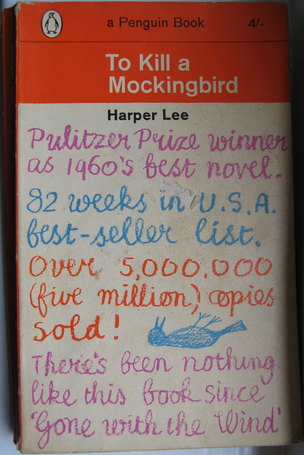 a Penguin Book 4/-
To Kill a
Mockingbird
Harper Lee
Pulitzer Prize winner
as 1960's best novel.
82 weeks in U.S.A.
best-seller list.
Over 5,000,000
(five million) copies
sold!
There's been nothing
like this book since
'Gone with the Wind'